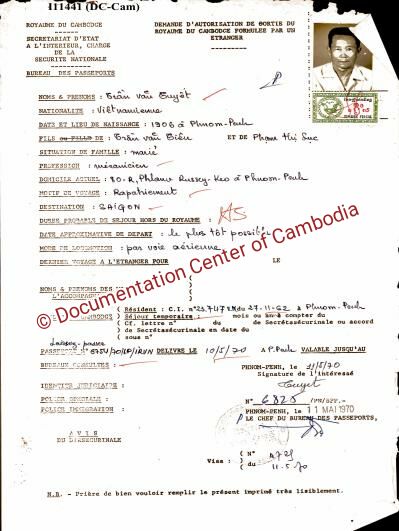 111441 (DC-Cam)
ROYAUME DU CAMBODGE
SECRETARIAT D'ETAT
A L'INTERIEUR, CHARGE
DE LA
SECURITE NATIONALE
BUREAU DES PASSEPORTS
DEMANDE D'AUTORISATION DE SORTIE DU
ROYAUME DU CAMBODGE FORMULEE PAR UN
ETRANGER
NOMS & PRENOMS : Trần văn Tuyết
NATIONALITE : Vietnamienne
DATE ET LIEU DE NAISSANCE : 1906 à Phnom-Penh
FILS OU FILLE DE : Trần văn ET DE Phạm thị
SITUATION DE FAMILLE : marié
PROFESSION : mécanicien
DOMICILE ACTUEL : Russey-Keo à Phnom-Penh
MOTIF DE VOYAGE : Rapatriement
DESTINATION : SAIGON
DUREE PROBABLE DU SEJOUR HORS DU ROYAUME : AS
DATE APPROXIMATIVE DE DEPART : le plus tôt possible
MODE DE LOCOMOTION : par voie aérienne
DERNIER VOYAGE A L'ETRANGER POUR LE
NOMS & PRENOMS DES
L'ACCOMPAGN
Résident : C.I. n° 23.747 du 27-11-62 à Phnom-Penh
CAMBODGE Séjour temporaire : mois ou an à compter du
Cf. lettre n° du de Secrétasécurinale ou accord
de Secrétasécurinale en date du
sous n°
Laissez-passer
PASSEPORT N° DELIVRE LE 10/5/70 A P.Penh VALABLE JUSQU'AU
BUREAUX CONSULTES :
PHNOM-PENH, le 11/5/70
Signature de l'intéressé
Tuyet
IDENTITE JUDICIAIRE :
POLICE SPECIALE :
POLICE IMMIGRATION :
N° 6825
PHNOM-PENH, LE 11 MAI 1970
LE CHEF DU BUREAU DES PASSEPORTS,
A V I S
DU SECRETASECURINALE
Visa : ( N° A725
( du 11.5.70
N.B. - Prière de bien vouloir remplir le présent imprimé très lisiblement.
© Documentation Center of Cambodia